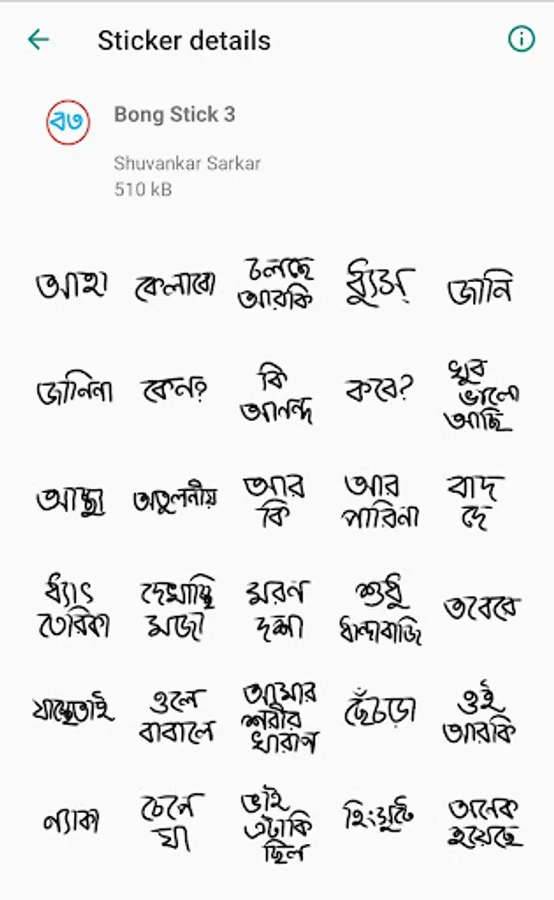 Sticker details
বত
Bong Stick 3
Shuvankar Sarkar
510 kB
আহা কেলাবো চলছে আরকি ধ্যুস্ জানি
জানিনা কেন? কি আনন্দ কবে? খুব ভালো আছি
আচ্ছা অতুলনীয় আর কি আর পারিনা বাদ দে
ধ্যাৎ তেরিকা দেখাচ্ছি মজা মরন দশা শুধু ধান্দাবাজি তবেরে
যাচ্ছেতাই ওলে বাবালে আমার শরীর খারাপ ছেঁচড়া ওই আরকি
ন্যাকা চেনে যা ভাই এটাকি ছিল হিংসুটে অনেক হয়েছে